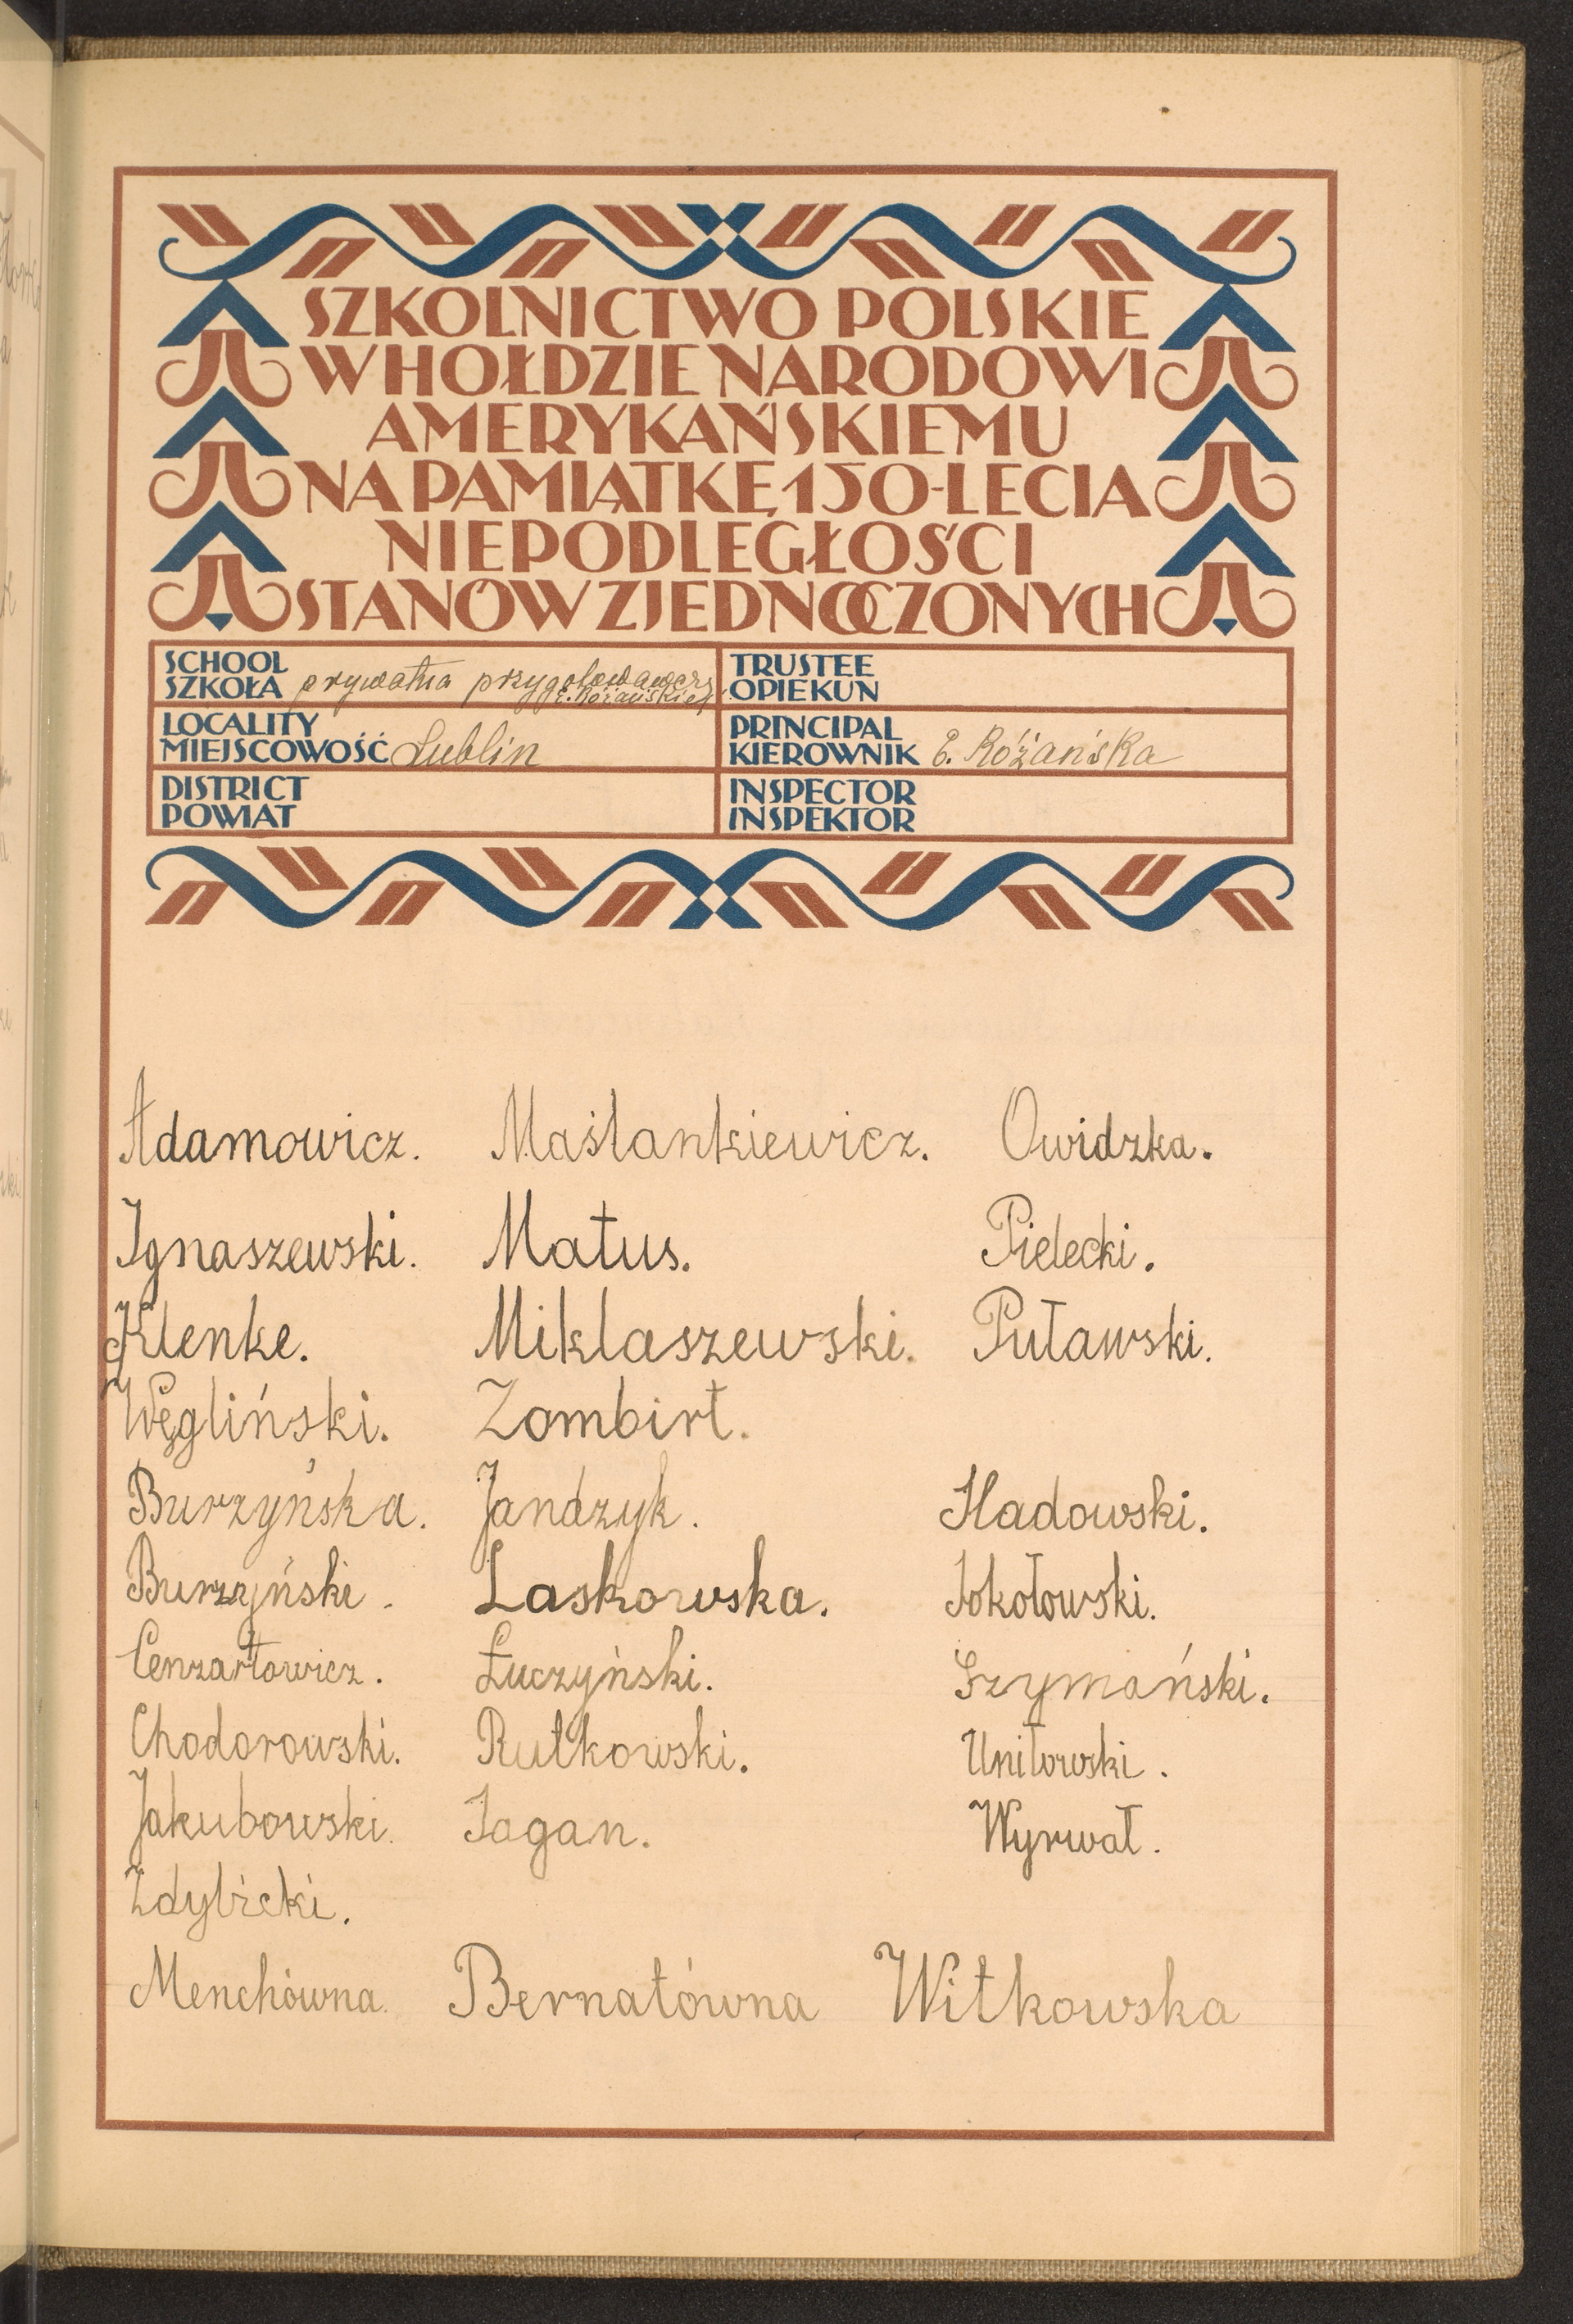 SZKOLNICTWO POLSKIE
W HOŁDZIE NARODOWI
AMERYKAŃSKIEMU
NA PAMIĄTKĘ 150-LECIA
NIEPODLEGŁOŚCI
STANÓW ZJEDNOCZONYCH
SCHOOL
SZKOŁA prywatna przygotowawcza
E. Różańskiej
TRUSTEE
OPIEKUN
LOCALITY
MIEJSCOWOŚĆ Lublin
PRINCIPAL
KIEROWNIK E. Różańska
DISTRICT
POWIAT
INSPECTOR
INSPEKTOR
Adamowicz. Maślankiewicz. Owidzka.
Ignaszewski. Matus. Pielecki.
Klenke. Miklaszewski. Puławski.
Węgliński. Zombirt.
Burzyńska. Jandzyk. Sladowski.
Burzyński. Laskowska. Sokołowski.
Cenzartowicz. Łuczyński. Szymański.
Chodorowski. Rutkowski. Uniłowski.
Jakubowski. Sagan. Wyrwał.
Zdybicki.
Menchówna. Bernatówna Witkowska